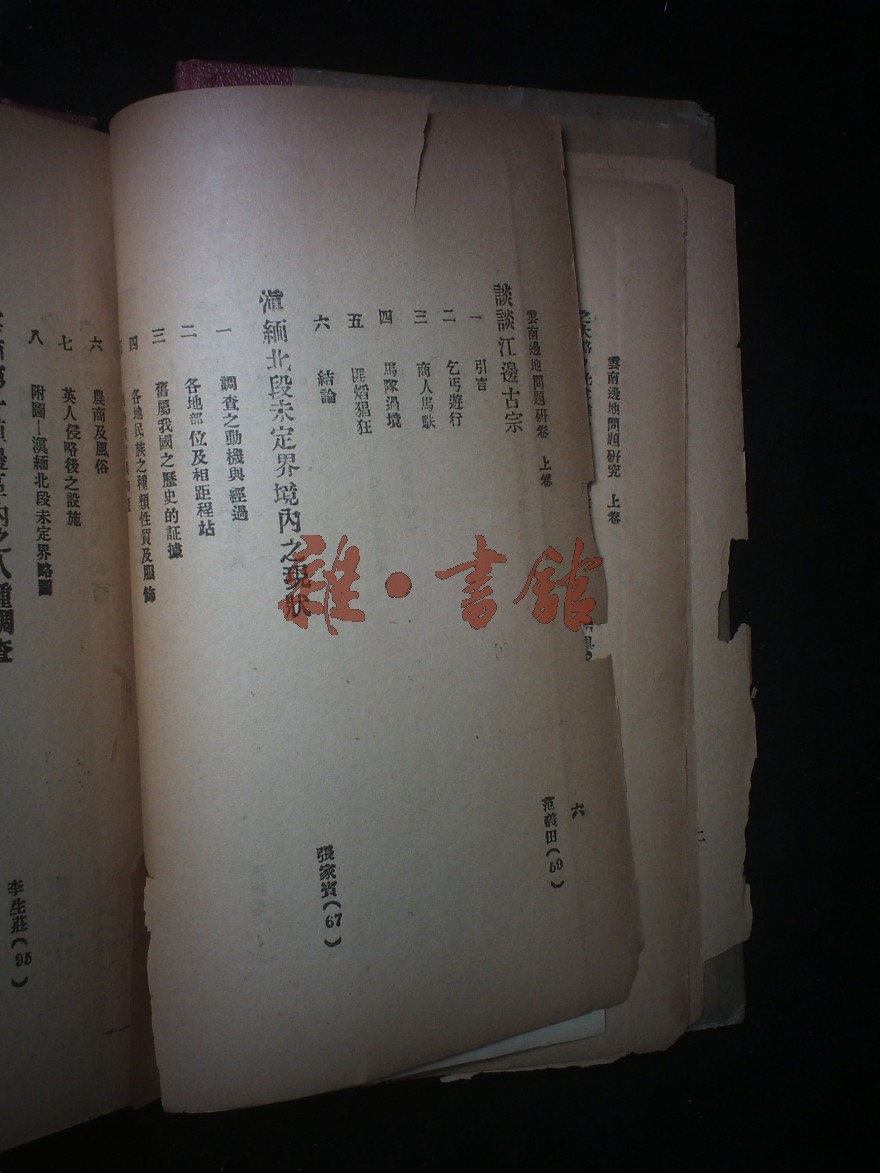 雲南邊地問題研究 上卷
雲南邊地問題研卷 上卷
六
談談江邊古宗
范義田(59)
一 引言
二 乞丐遊行
三 商人馬馱
四 馬隊過境
五 匪焰猖狂
六 結論
滇緬北段未定界境內之現狀
張家賓(67)
一 調查之動機與經過
二 各地部位及相距程站
三 舊屬我國之歷史的証據
四 各地民族之種類性質及服飾
六 農商及風俗
七 英人侵略後之設施
八 附圖—滇緬北段未定界略圖
邊區內之八種調查
李生莊(95)
雜·書館